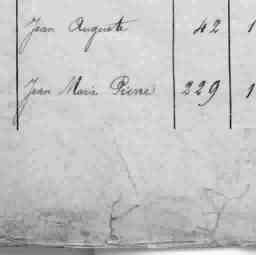 Jean Auguste 42 1
Jean Marie Pierre 229 1